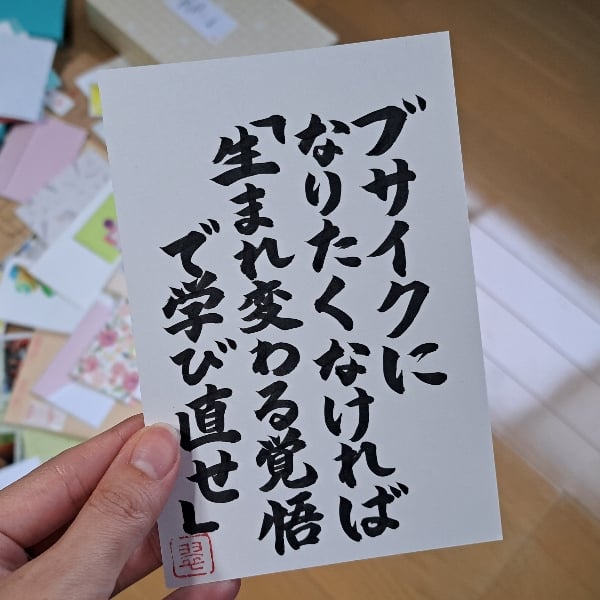 ブサイクに
なりたくなければ
「生まれ変わる覚悟
で学び直せ」